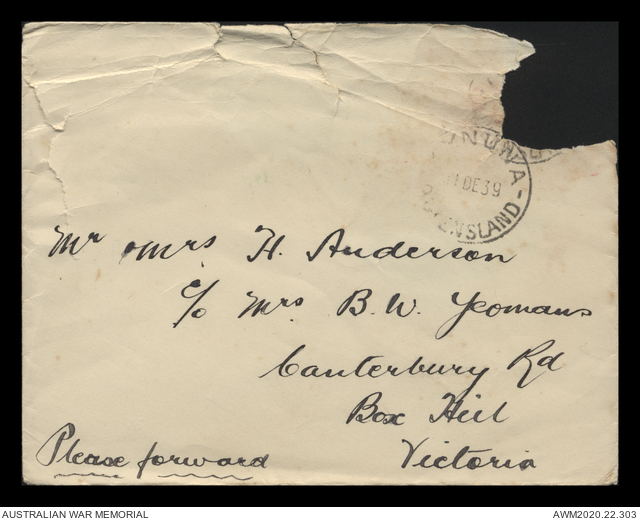 NUNWA
1 DE 39
QUEENSLAND
Mr & Mrs H. Anderson
c/o Mrs B. W. Yeomans
Canterbury Rd
Box Hill
Victoria
Please forward
AUSTRALIAN WAR MEMORIAL
AWM2020.22.303